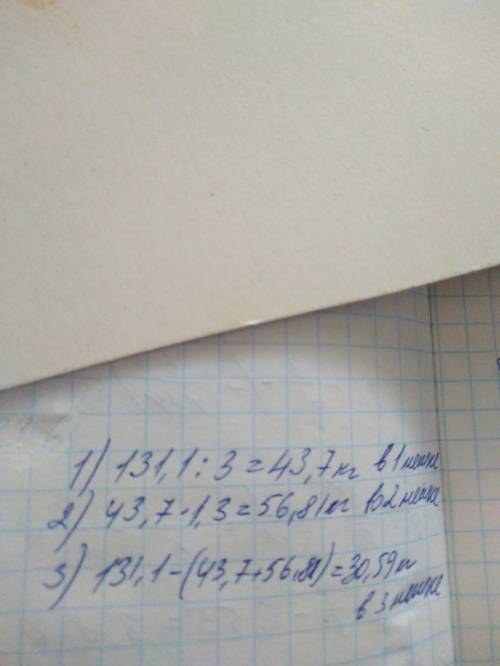 1) 131,1 : 3 = 43,7 кг в 1 мешке
2) 43,7 · 1,3 = 56,81 кг во 2 мешке
3) 131,1 - (43,7 + 56,81) = 30,59 кг
в 3 мешке